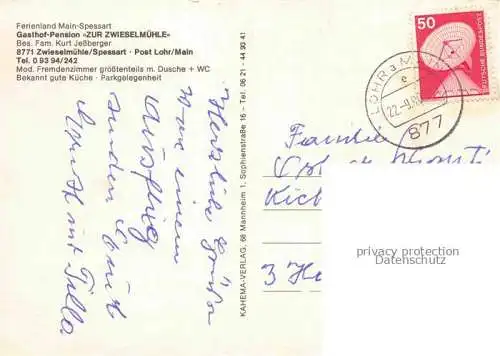 Ferienland Main-Spessart
Gasthof-Pension »ZUR ZWIESELMÜHLE«
Bes. Fam. Kurt Jeßberger
8771 Zwieselmühle/Spessart · Post Lohr/Main
Tel. 0 93 94/242
Mod. Fremdenzimmer größtenteils m. Dusche + WC
Bekannt gute Küche · Parkgelegenheit
Herzliche Grüße
von einem
Ausflug
senden Euch
mit Tilla
KAHEMA-VERLAG, 68 Mannheim 1, Sophienstraße 16 - Tel. 06 21 - 44 93 41
50
DEUTSCHE BUNDESPOST
LOHR a MAIN
e
22.-9.
877
Familie
3 Ha
privacy protection
Datenschutz